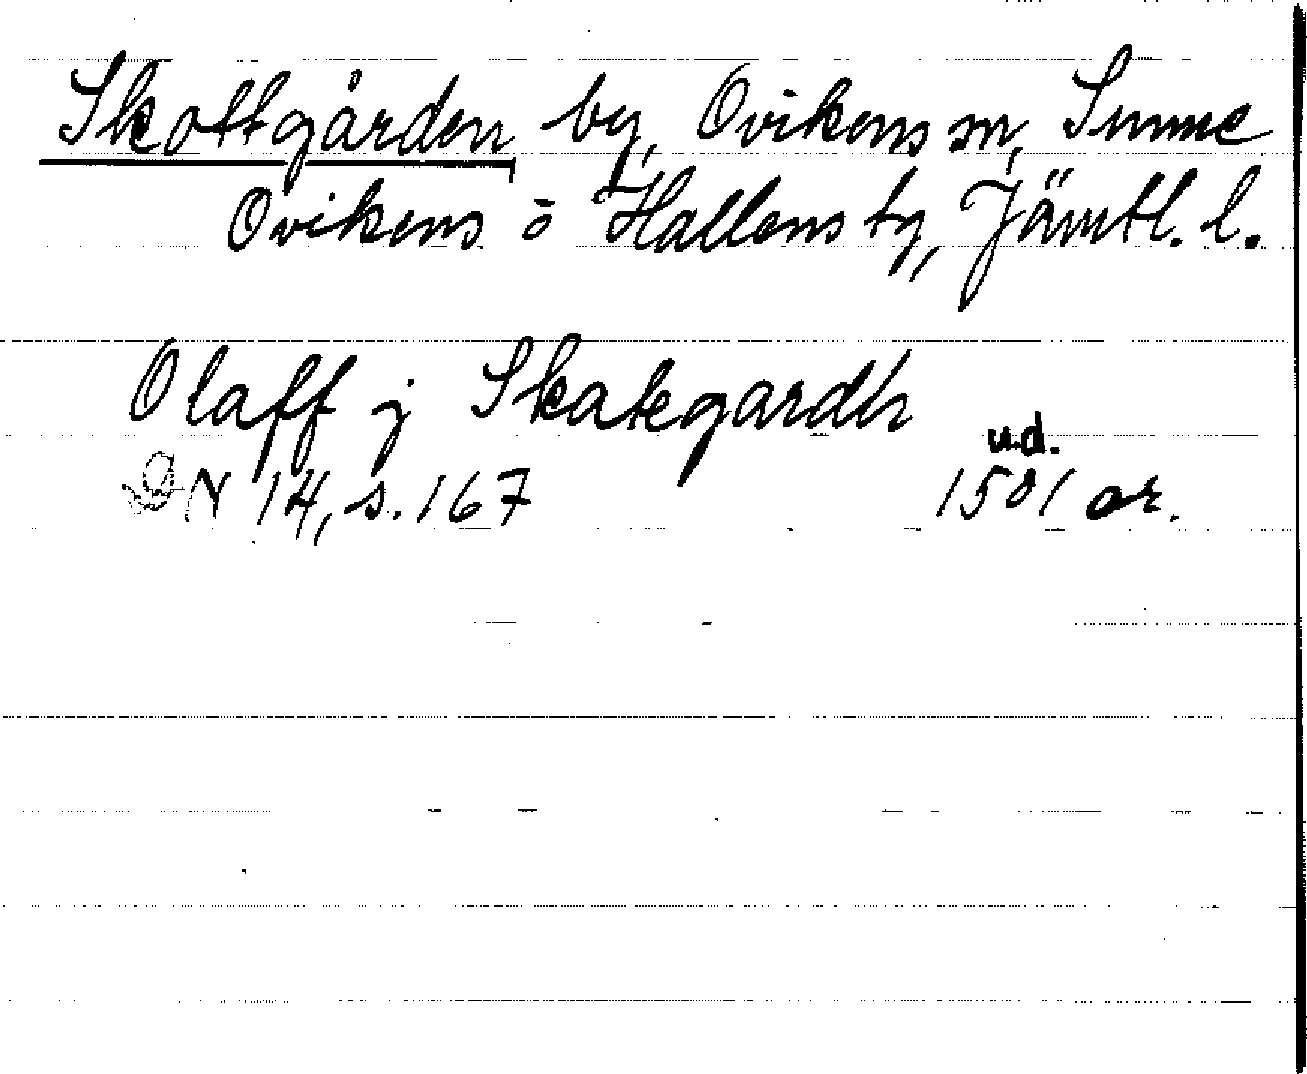 Skottgården, by, Ovikens sn, Sunne
Ovikens o Hallens tg, Jämtl. l.
Olaff j Skategardh
u.d.
DN 14, s. 167 1501 or.